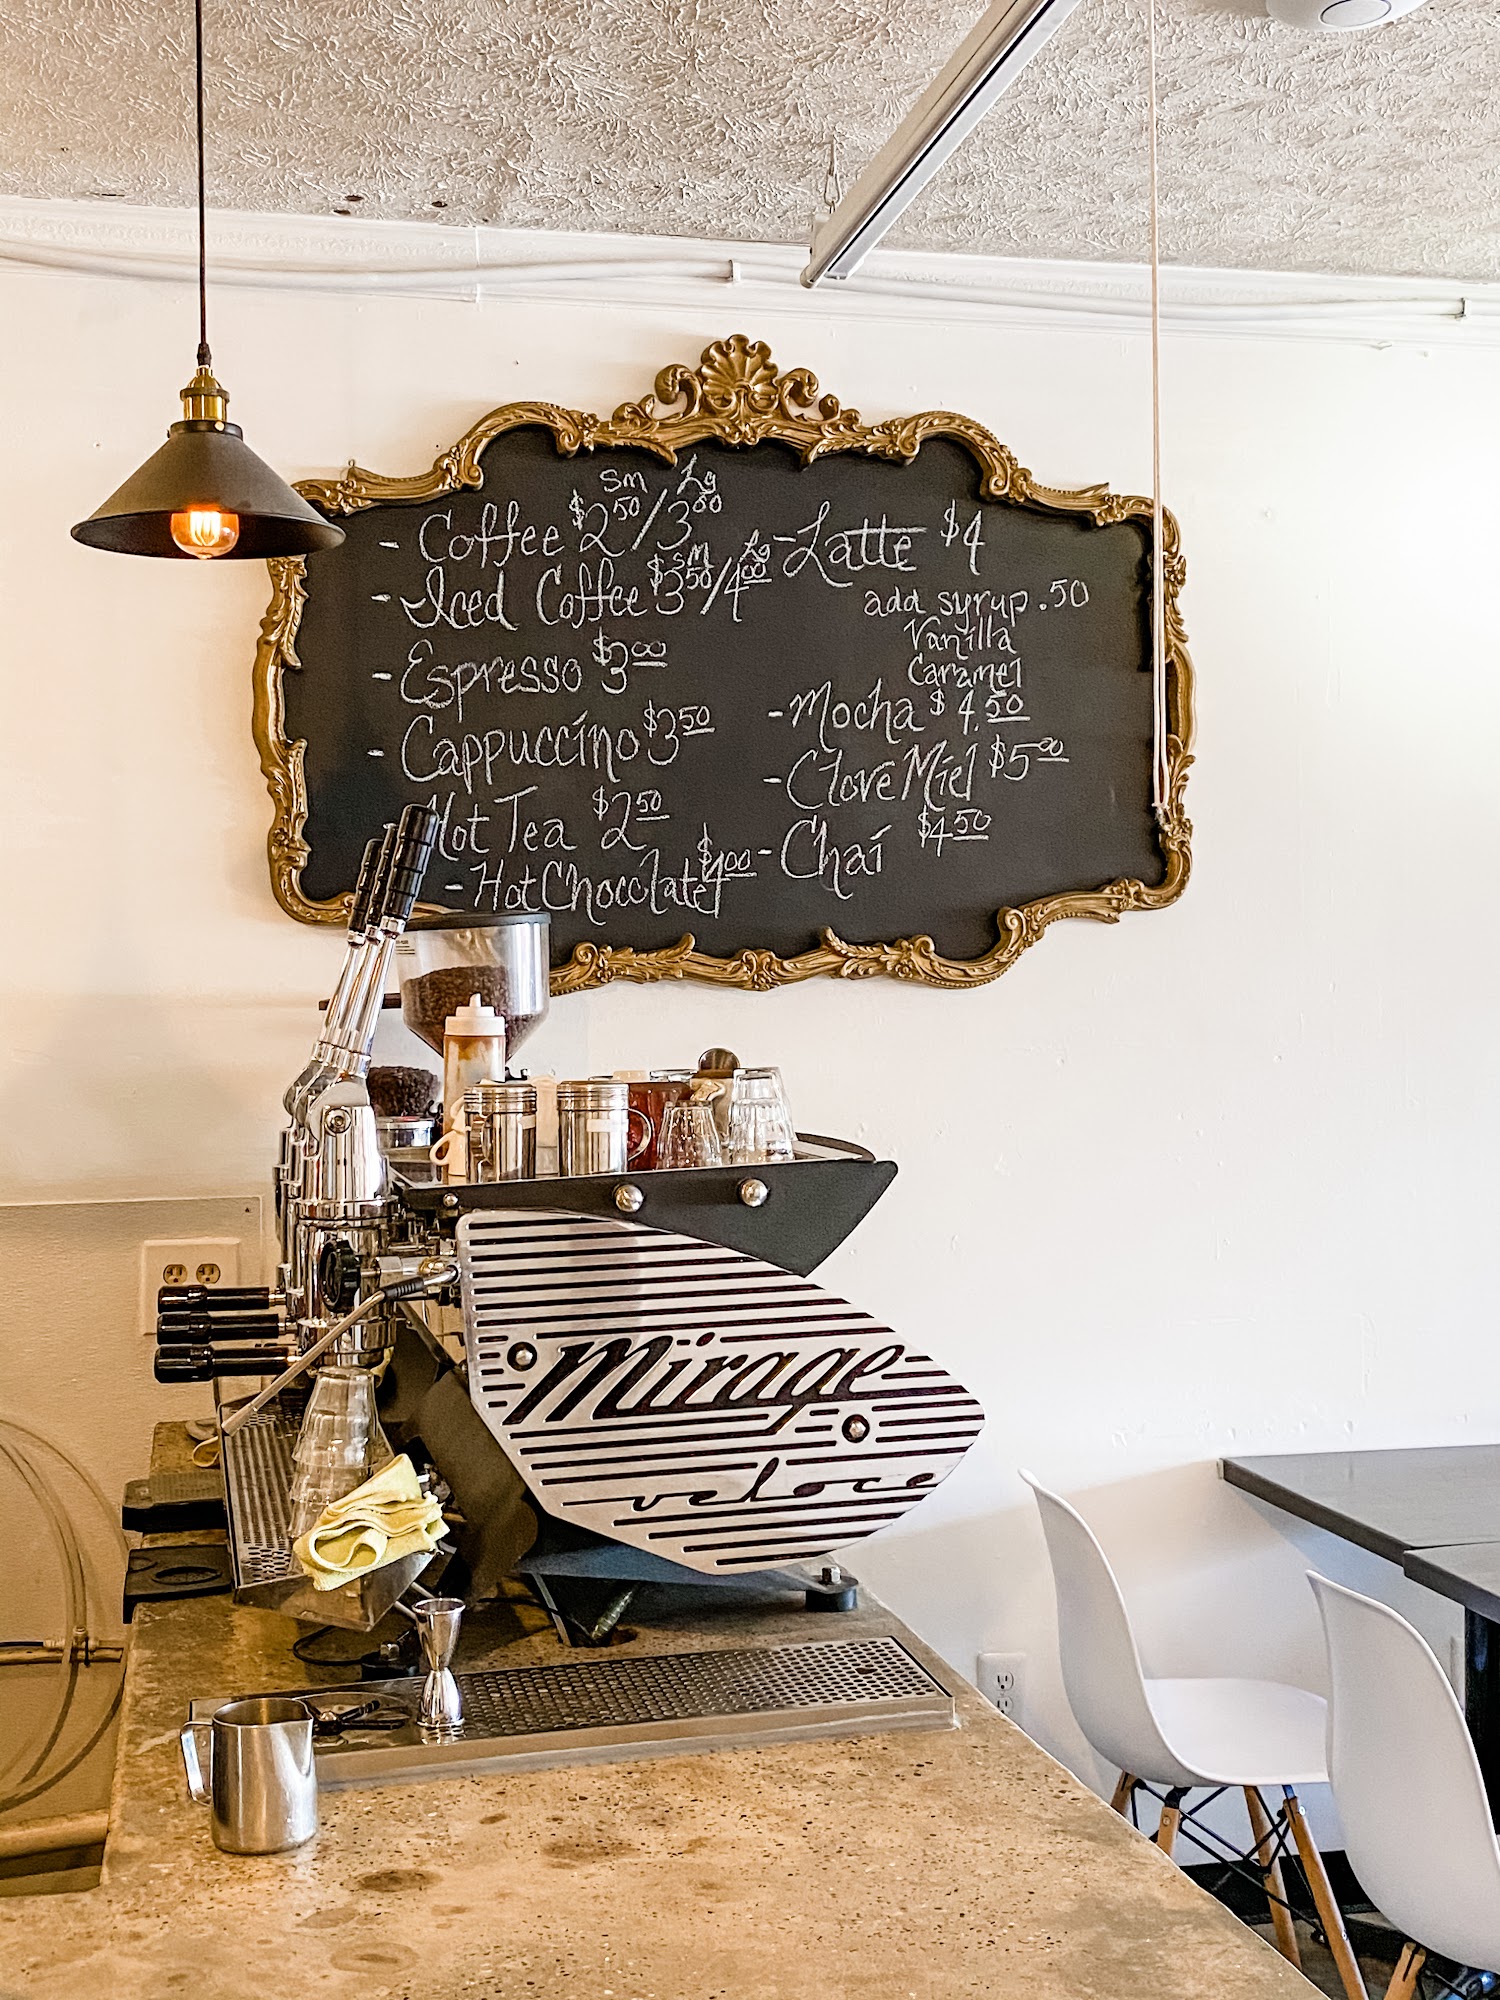 Sm Lg
- Coffee $2.50/3.00
Sm Lg
- Iced Coffee $3.50/4.00
- Espresso $3.00
- Cappuccino $3.50
Hot Tea $2.50
- Hot Chocolate $4.00
- Latte $4
add syrup .50
Vanilla
Caramel
- Mocha $4.50
- Clove Miel $5.00
- Chai $4.50
Mirage
veloce